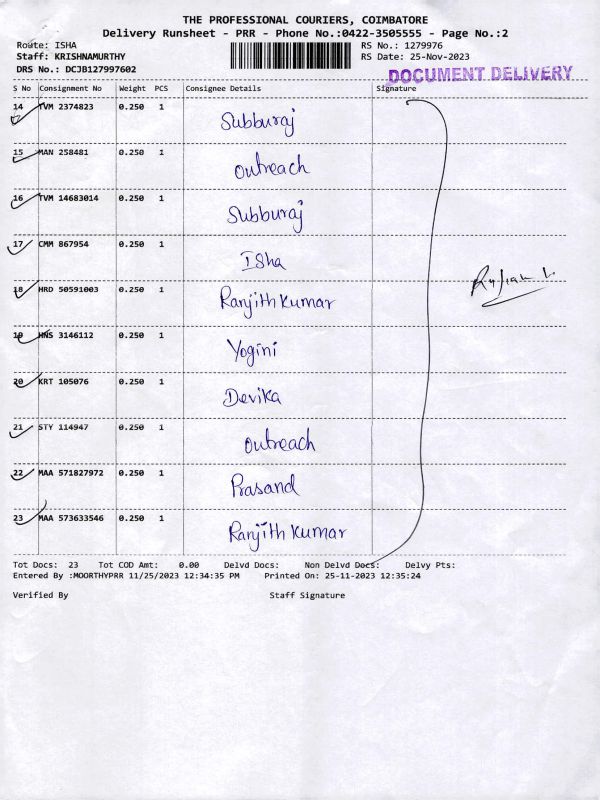 THE PROFESSIONAL COURIERS, COIMBATORE
Delivery Runsheet - PRR - Phone No.:0422-3505555 - Page No.:2
Route: ISHA RS No.: 1279976
Staff: KRISHNAMURTHY RS Date: 25-Nov-2023
DRS No.: DCJB127997602 DOCUMENT DELIVERY
S No Consignment No Weight PCS Consignee Details Signature
14 TVM 2374823 0.250 1 Subburaj
15 MAN 258481 0.250 1 Outreach
16 TVM 14683014 0.250 1 Subburaj
17 CMM 867954 0.250 1 Isha
18 HRD 50591003 0.250 1 Ranjith Kumar
19 HNS 3146112 0.250 1 Yogini
20 KRT 105076 0.250 1 Devika
21 STY 114947 0.250 1 Outreach
22 MAA 571827972 0.250 1 Prasand
23 MAA 573633546 0.250 1 Ranjith Kumar
Tot Docs: 23 Tot COD Amt: 0.00 Delvd Docs: Non Delvd Docs: Delvy Pts:
Entered By :MOORTHYPRR 11/25/2023 12:34:35 PM Printed On: 25-11-2023 12:35:24
Verified By Staff Signature